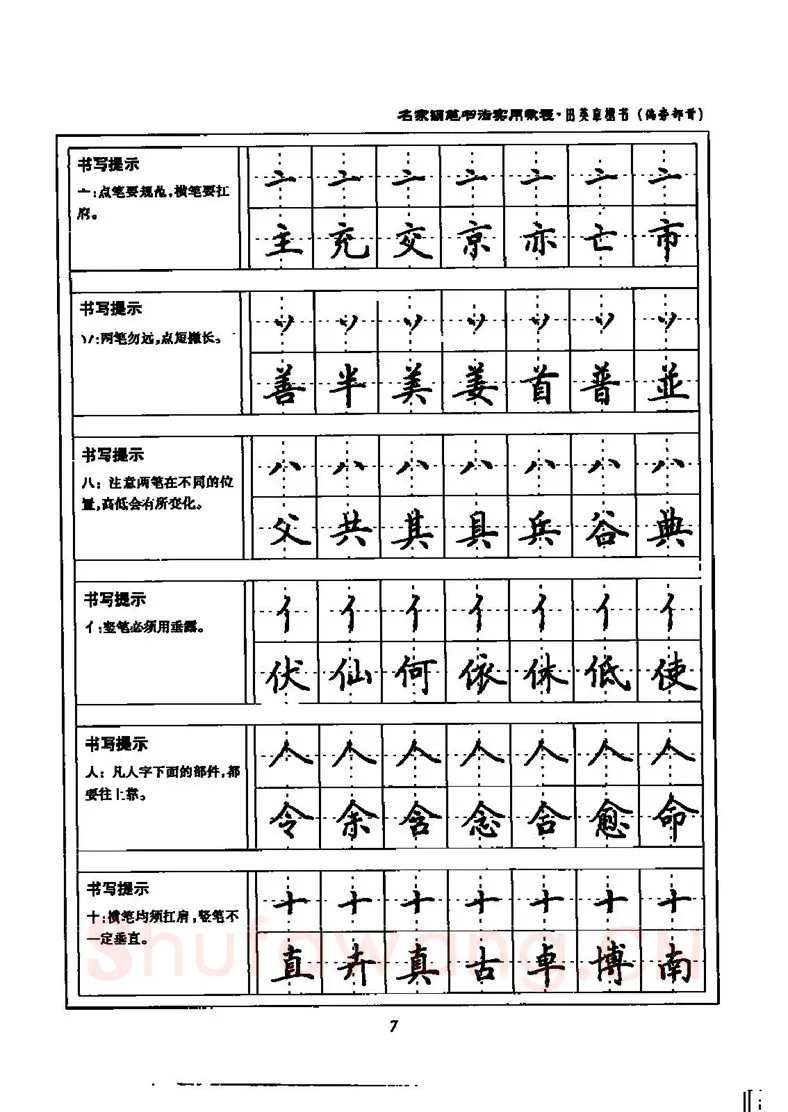 名家钢笔书法实用教程·田英章楷书(偏旁部首)
书写提示
亠:点笔要规范,横笔要扛
肩。
亠亠亠亠亠亠亠
主充交京亦亡市
书写提示
丷:两笔勿远,点短撇长。
丷丷丷丷丷丷丷
善半美姜首普並
书写提示
八: 注意两笔在不同的位
置,高低会有所变化。
八八八八八八八
父共其具兵谷典
书写提示
亻:竖笔必须用垂露。
亻亻亻亻亻亻亻
伏仙何依休低使
书写提示
人: 凡人字下面的部件,都
要往上靠。
人人人人人人人
令余含念合愈命
书写提示
十:横笔均须扛肩,竖笔不
一定垂直。
十十十十十十十
直卉真古卓博南
Shufawang.CN
7